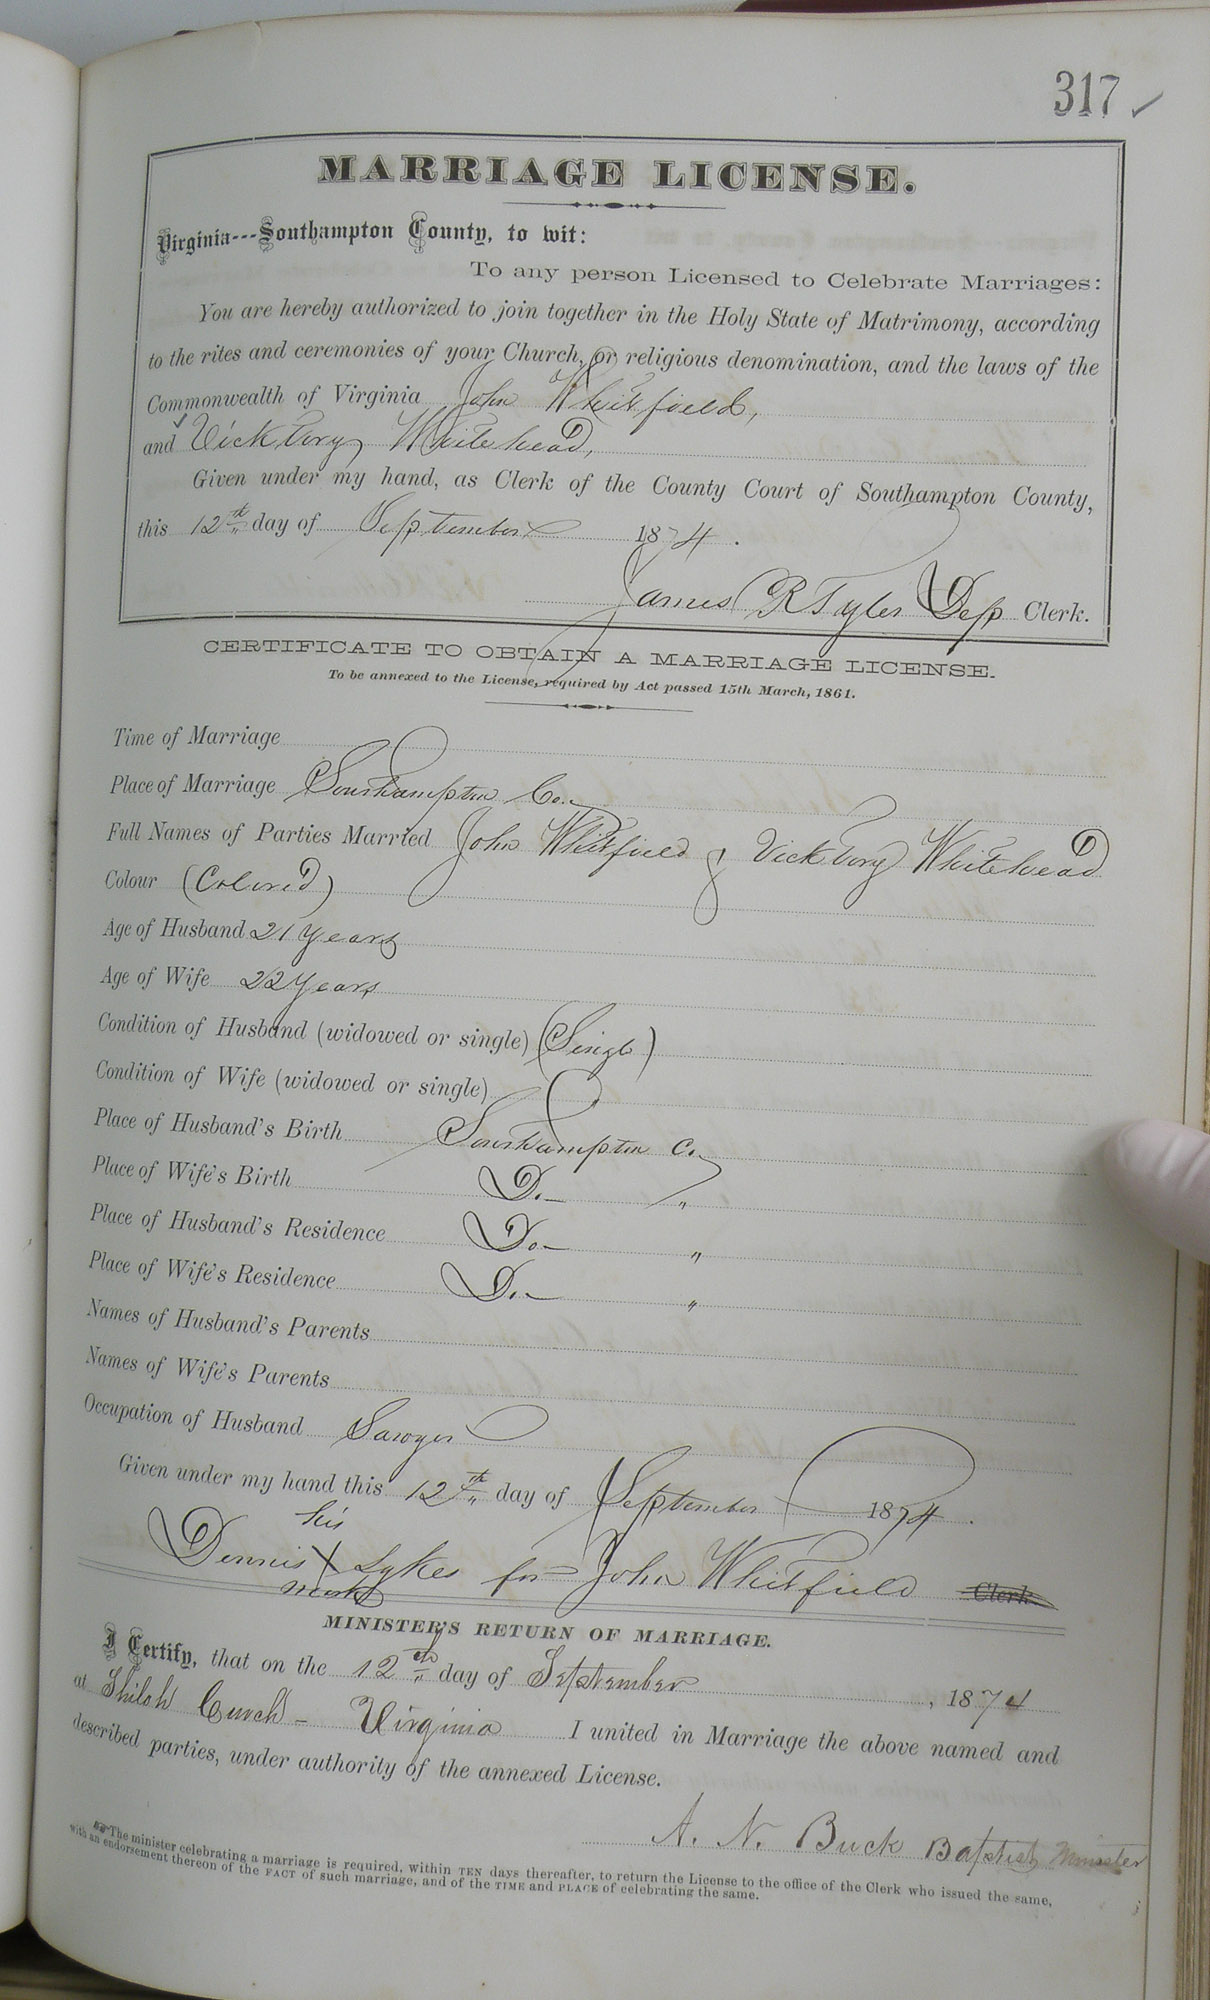 317 ✓
MARRIAGE LICENSE.
Virginia---Southampton County, to wit:
To any person Licensed to Celebrate Marriages:
You are hereby authorized to join together in the Holy State of Matrimony, according
to the rites and ceremonies of your Church, or religious denomination, and the laws of the
Commonwealth of Virginia John Whitfield,
and Vicktory Whitehead,
Given under my hand, as Clerk of the County Court of Southampton County,
this 12th day of September 1874.
James R Tyler Dep Clerk.
CERTIFICATE TO OBTAIN A MARRIAGE LICENSE.
To be annexed to the License, required by Act passed 15th March, 1861.
Time of Marriage
Place of Marriage Southampton Co.
Full Names of Parties Married John Whitfield & Vicktory Whitehead
Colour (Colored)
Age of Husband 21 Years
Age of Wife 22 Years
Condition of Husband (widowed or single) (Single)
Condition of Wife (widowed or single)
Place of Husband's Birth Southampton C.
Place of Wife's Birth Do — "
Place of Husband's Residence Do — "
Place of Wife's Residence Do — "
Names of Husband's Parents
Names of Wife's Parents
Occupation of Husband Sawyer
Given under my hand this 12th day of September 1874.
his
Dennis X Sykes for John Whitfield Clerk
mark
MINISTER'S RETURN OF MARRIAGE.
I Certify, that on the 12th day of September, 1874
at Shiloh Curch - Virginia I united in Marriage the above named and
described parties, under authority of the annexed License.
A. N. Buck Baptist Minister
☞ The minister celebrating a marriage is required, within TEN days thereafter, to return the License to the office of the Clerk who issued the same,
with an endorsement thereon of the FACT of such marriage, and of the TIME and PLACE of celebrating the same.